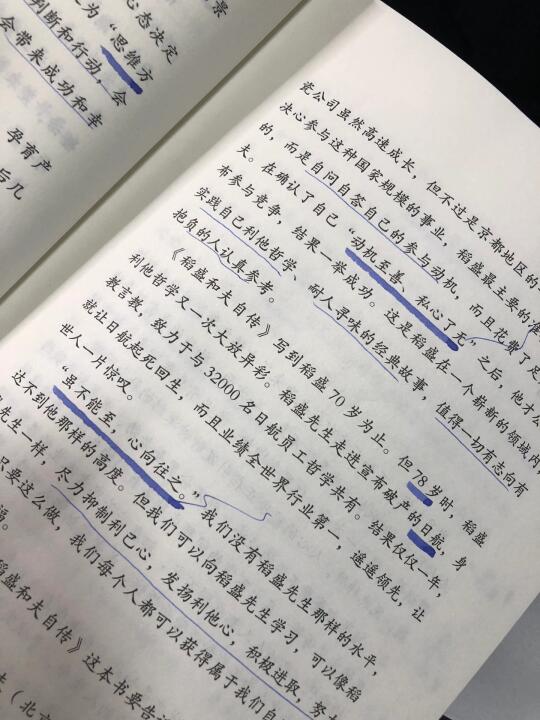 景
心态决定
为“思维方
判断和行动，会
会带来成功和幸
孕育产
后几
瓷公司虽然高速成长，但不过是京都地区的
决心参与这种国家规模的事业，稻盛最主要的
的，而是自问自答自己的参与动机，而且花费了足
夫。在确认了自己“动机至善、私心了无”之后，他才
布参与竞争，结果一举成功。这是稻盛在一个崭新的领域内
实践自己利他哲学、耐人寻味的经典故事，值得一切有志向有
抱负的人认真参考。
《稻盛和夫自传》写到稻盛70岁为止。但78岁时，稻盛
利他哲学又一次大放异彩。稻盛先生走进宣布破产的日航，身
教言教，致力于与32000名日航员工哲学共有。结果仅仅一年，
就让日航起死回生，而且业绩全世界行业第一，遥遥领先，让
世人一片惊叹。
“虽不能至，心向往之。”我们没有稻盛先生那样的水平，
达不到他那样的高度。但我们可以向稻盛先生学习，可以像稻
先生一样，尽力抑制利己心，发扬利他心，积极进取，努
只要这么做，我们每个人都可以获得属于我们自
福。
稻盛和夫自传》这本书要告
（北京